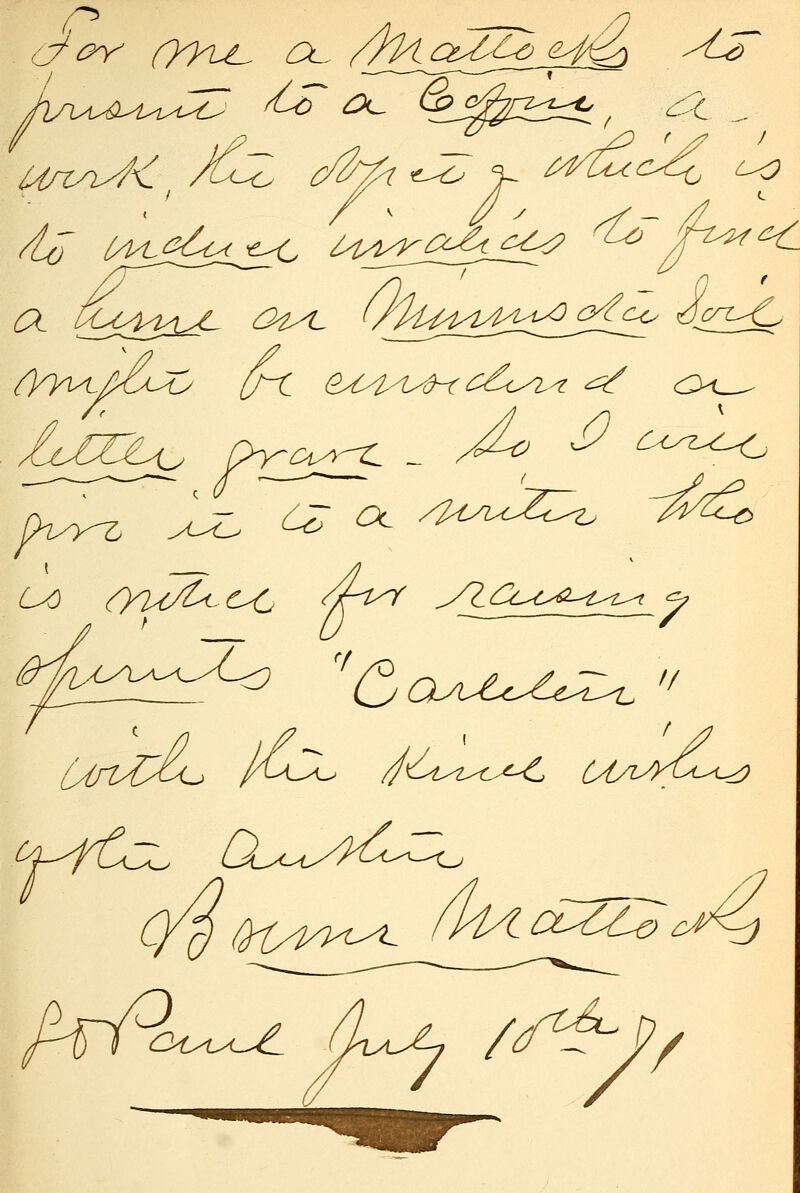 For me a Mattocks to
present to a Coffin, a
work, the object of which is
to induce invalids to find
a home on Minnesota Soil
might be considered a
little grave - So I will
give it to a writer who
is noticed for raising
spirits "Carleton"
with the kind wishes
of the Author
Brewer Mattocks
St Paul July 10th 71